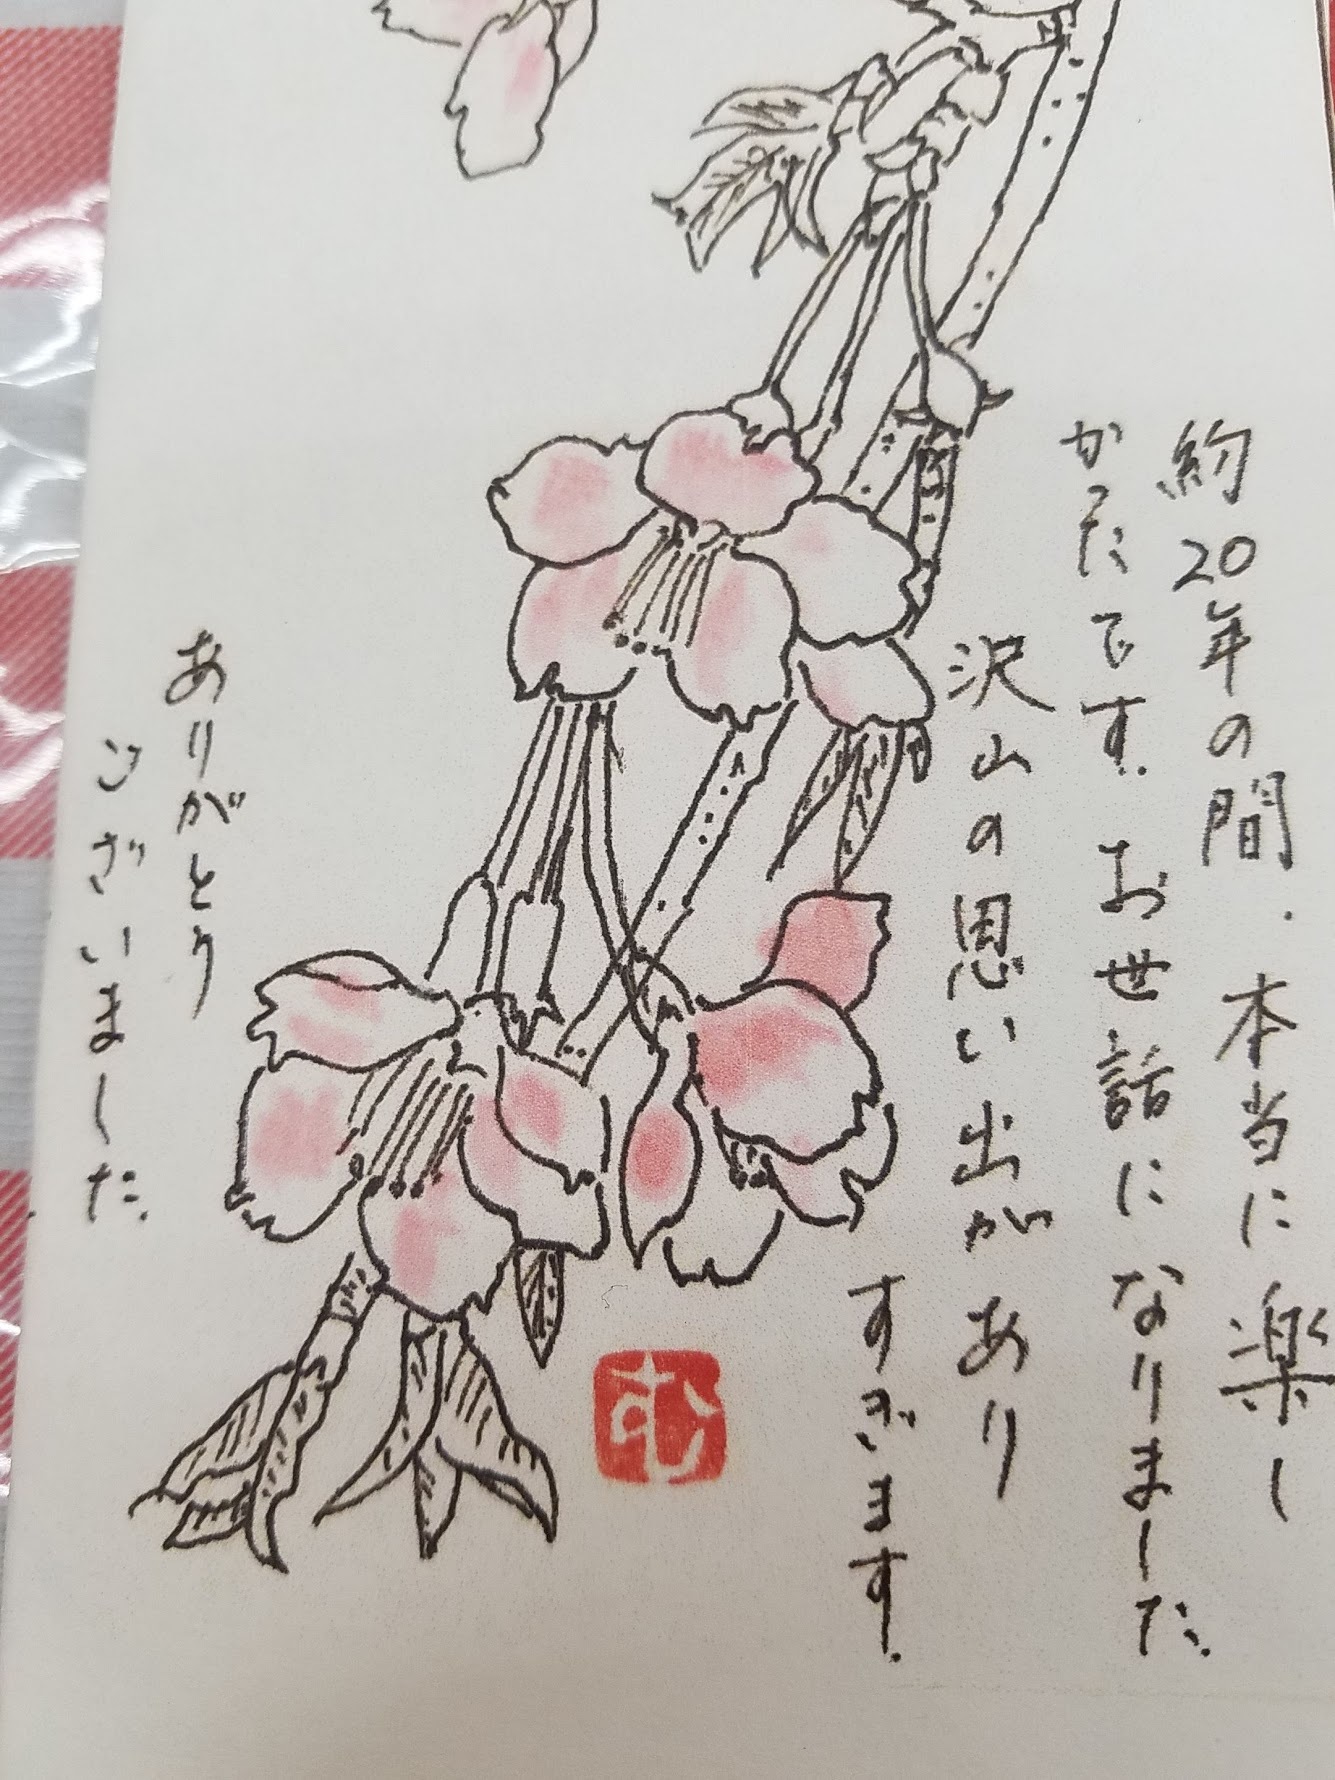 約20年の間.本当に楽し
かったです.お世話になりました.
沢山の思い出があり
すぎます.
ありがとう
ございました.
む